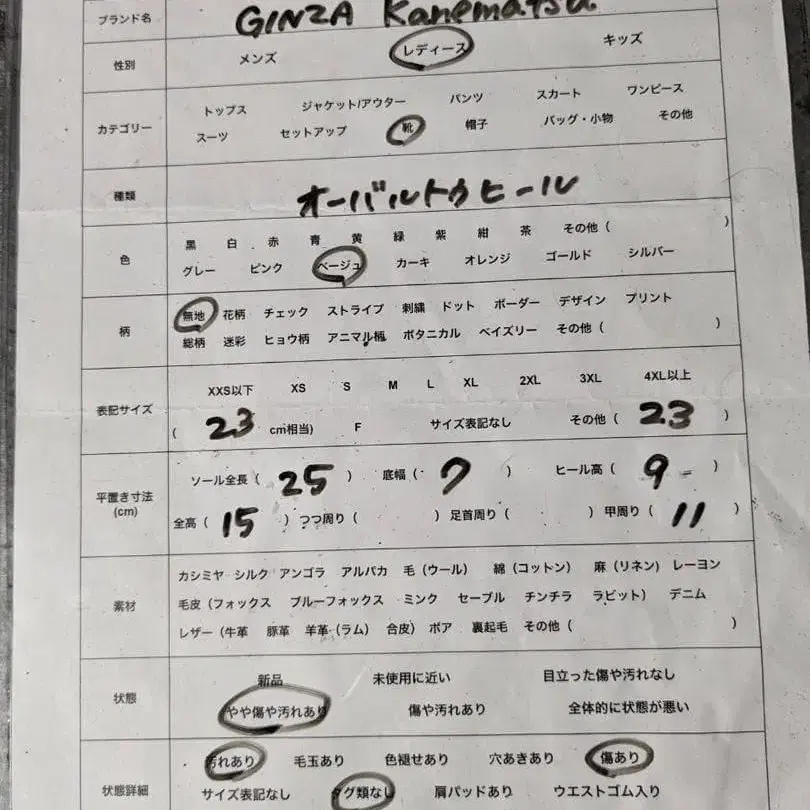 ブランド名 GINZA Kanematsu
性別 メンズ レディース キッズ
トップス ジャケット/アウター パンツ スカート ワンピース
カテゴリー
スーツ セットアップ 靴 帽子 バッグ・小物 その他
種類 オーバルトゥヒール
黒 白 赤 青 黄 緑 紫 紺 茶 その他 ( )
色
グレー ピンク ベージュ カーキ オレンジ ゴールド シルバー
無地 花柄 チェック ストライプ 刺繍 ドット ボーダー デザイン プリント
柄
総柄 迷彩 ヒョウ柄 アニマル柄 ボタニカル ペイズリー その他 ( )
XXS以下 XS S M L XL 2XL 3XL 4XL以上
表記サイズ
( 23 cm相当) F サイズ表記なし その他 ( 23 )
ソール全長 ( 25 ) 底幅 ( 7 ) ヒール高 ( 9 )
平置き寸法
(cm)
全高 ( 15 ) つつ周り ( ) 足首周り ( ) 甲周り ( 11 )
カシミヤ シルク アンゴラ アルパカ 毛（ウール） 綿（コットン） 麻（リネン） レーヨン
素材 毛皮（フォックス ブルーフォックス ミンク セーブル チンチラ ラビット） デニム
レザー（牛革 豚革 羊革（ラム） 合皮） ボア 裏起毛 その他 ( )
新品 未使用に近い 目立った傷や汚れなし
状態
やや傷や汚れあり 傷や汚れあり 全体的に状態が悪い
汚れあり 毛玉あり 色褪せあり 穴あきあり 傷あり
状態詳細 サイズ表記なし タグ類なし 肩パッドあり ウエストゴム入り